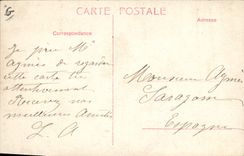 CARTE POSTALE
Correspondance
Adresse
Je prie Mr
Agnès de regarder
cette carte
attentivement
Recevez nos
meilleures
L A
Monsieur Agnès
Saragosse
Espagne